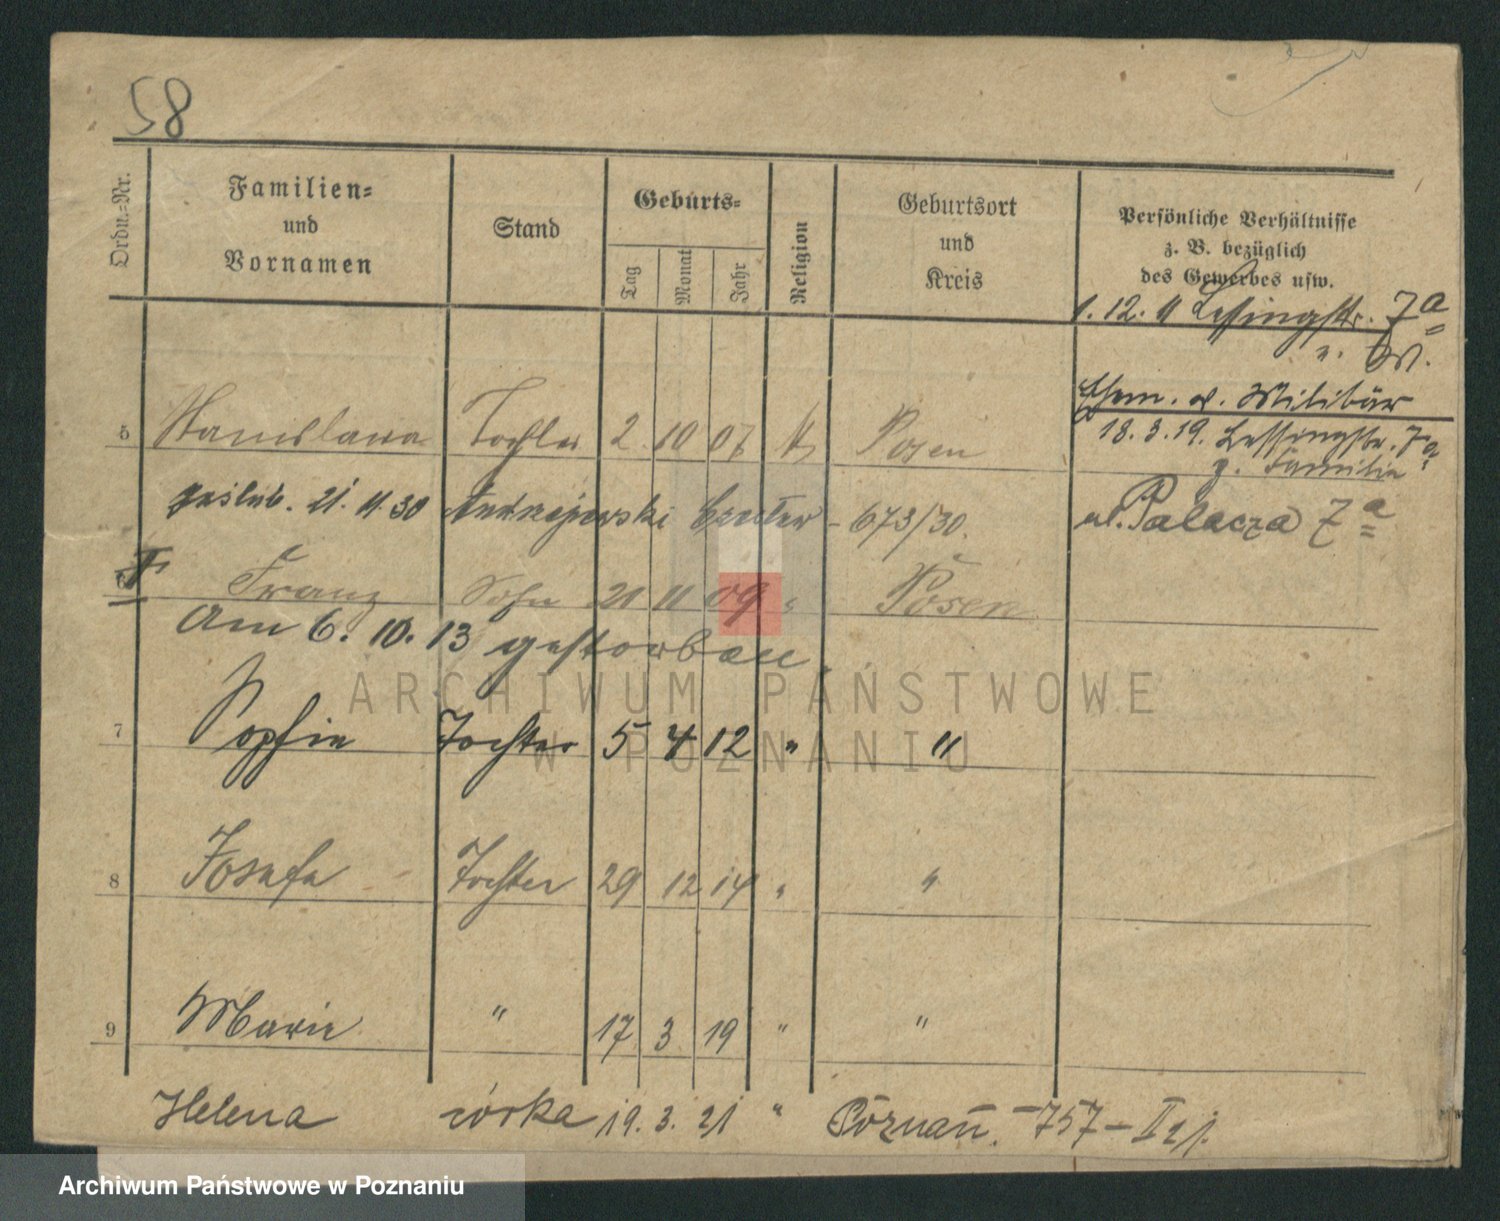 58
Ordn.-Nr.
Familien-
und
Vornamen
Stand
Geburts-
Tag
Monat
Jahr
Religion
Geburtsort
und
Kreis
Persönliche Verhältnisse
z. B. bezüglich
des Gewerbes usw.
1. 12. 11 Lessingstr. 7a
v. Militär
18. 3. 19. Lessingstr. 7a
z. Familie
5 Stanislawa Tochter 2 10 07 Posen
zaślub. 21. 11. 30 Andrzejewski Czesław - 673/30.
ul. Palacza 7a
Franz Sohn 21 11 09 " Posen
Am 6. 10. 13 gestorben.
7 Sophie Tochter 5 4 12 " "
8 Josefa Tochter 29 12 14 " "
9 Marie " 17 3 19 " "
Helena córka 19. 3. 21 " Poznań. - 757 - II 21.
ARCHIWUM PAŃSTWOWE
W POZNANIU
Archiwum Państwowe w Poznaniu